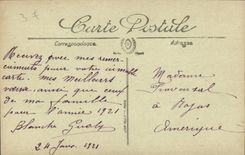 Carte Postale
Correspondance
Adresse
Recevez avec mes remer-
ciements pour votre
carte. mes meilleurs
voeux ainsi que ceux
de ma famille
pour l'année 1921
Blanche
24 Janv. 1921
Madame
à Rojas
Amerique